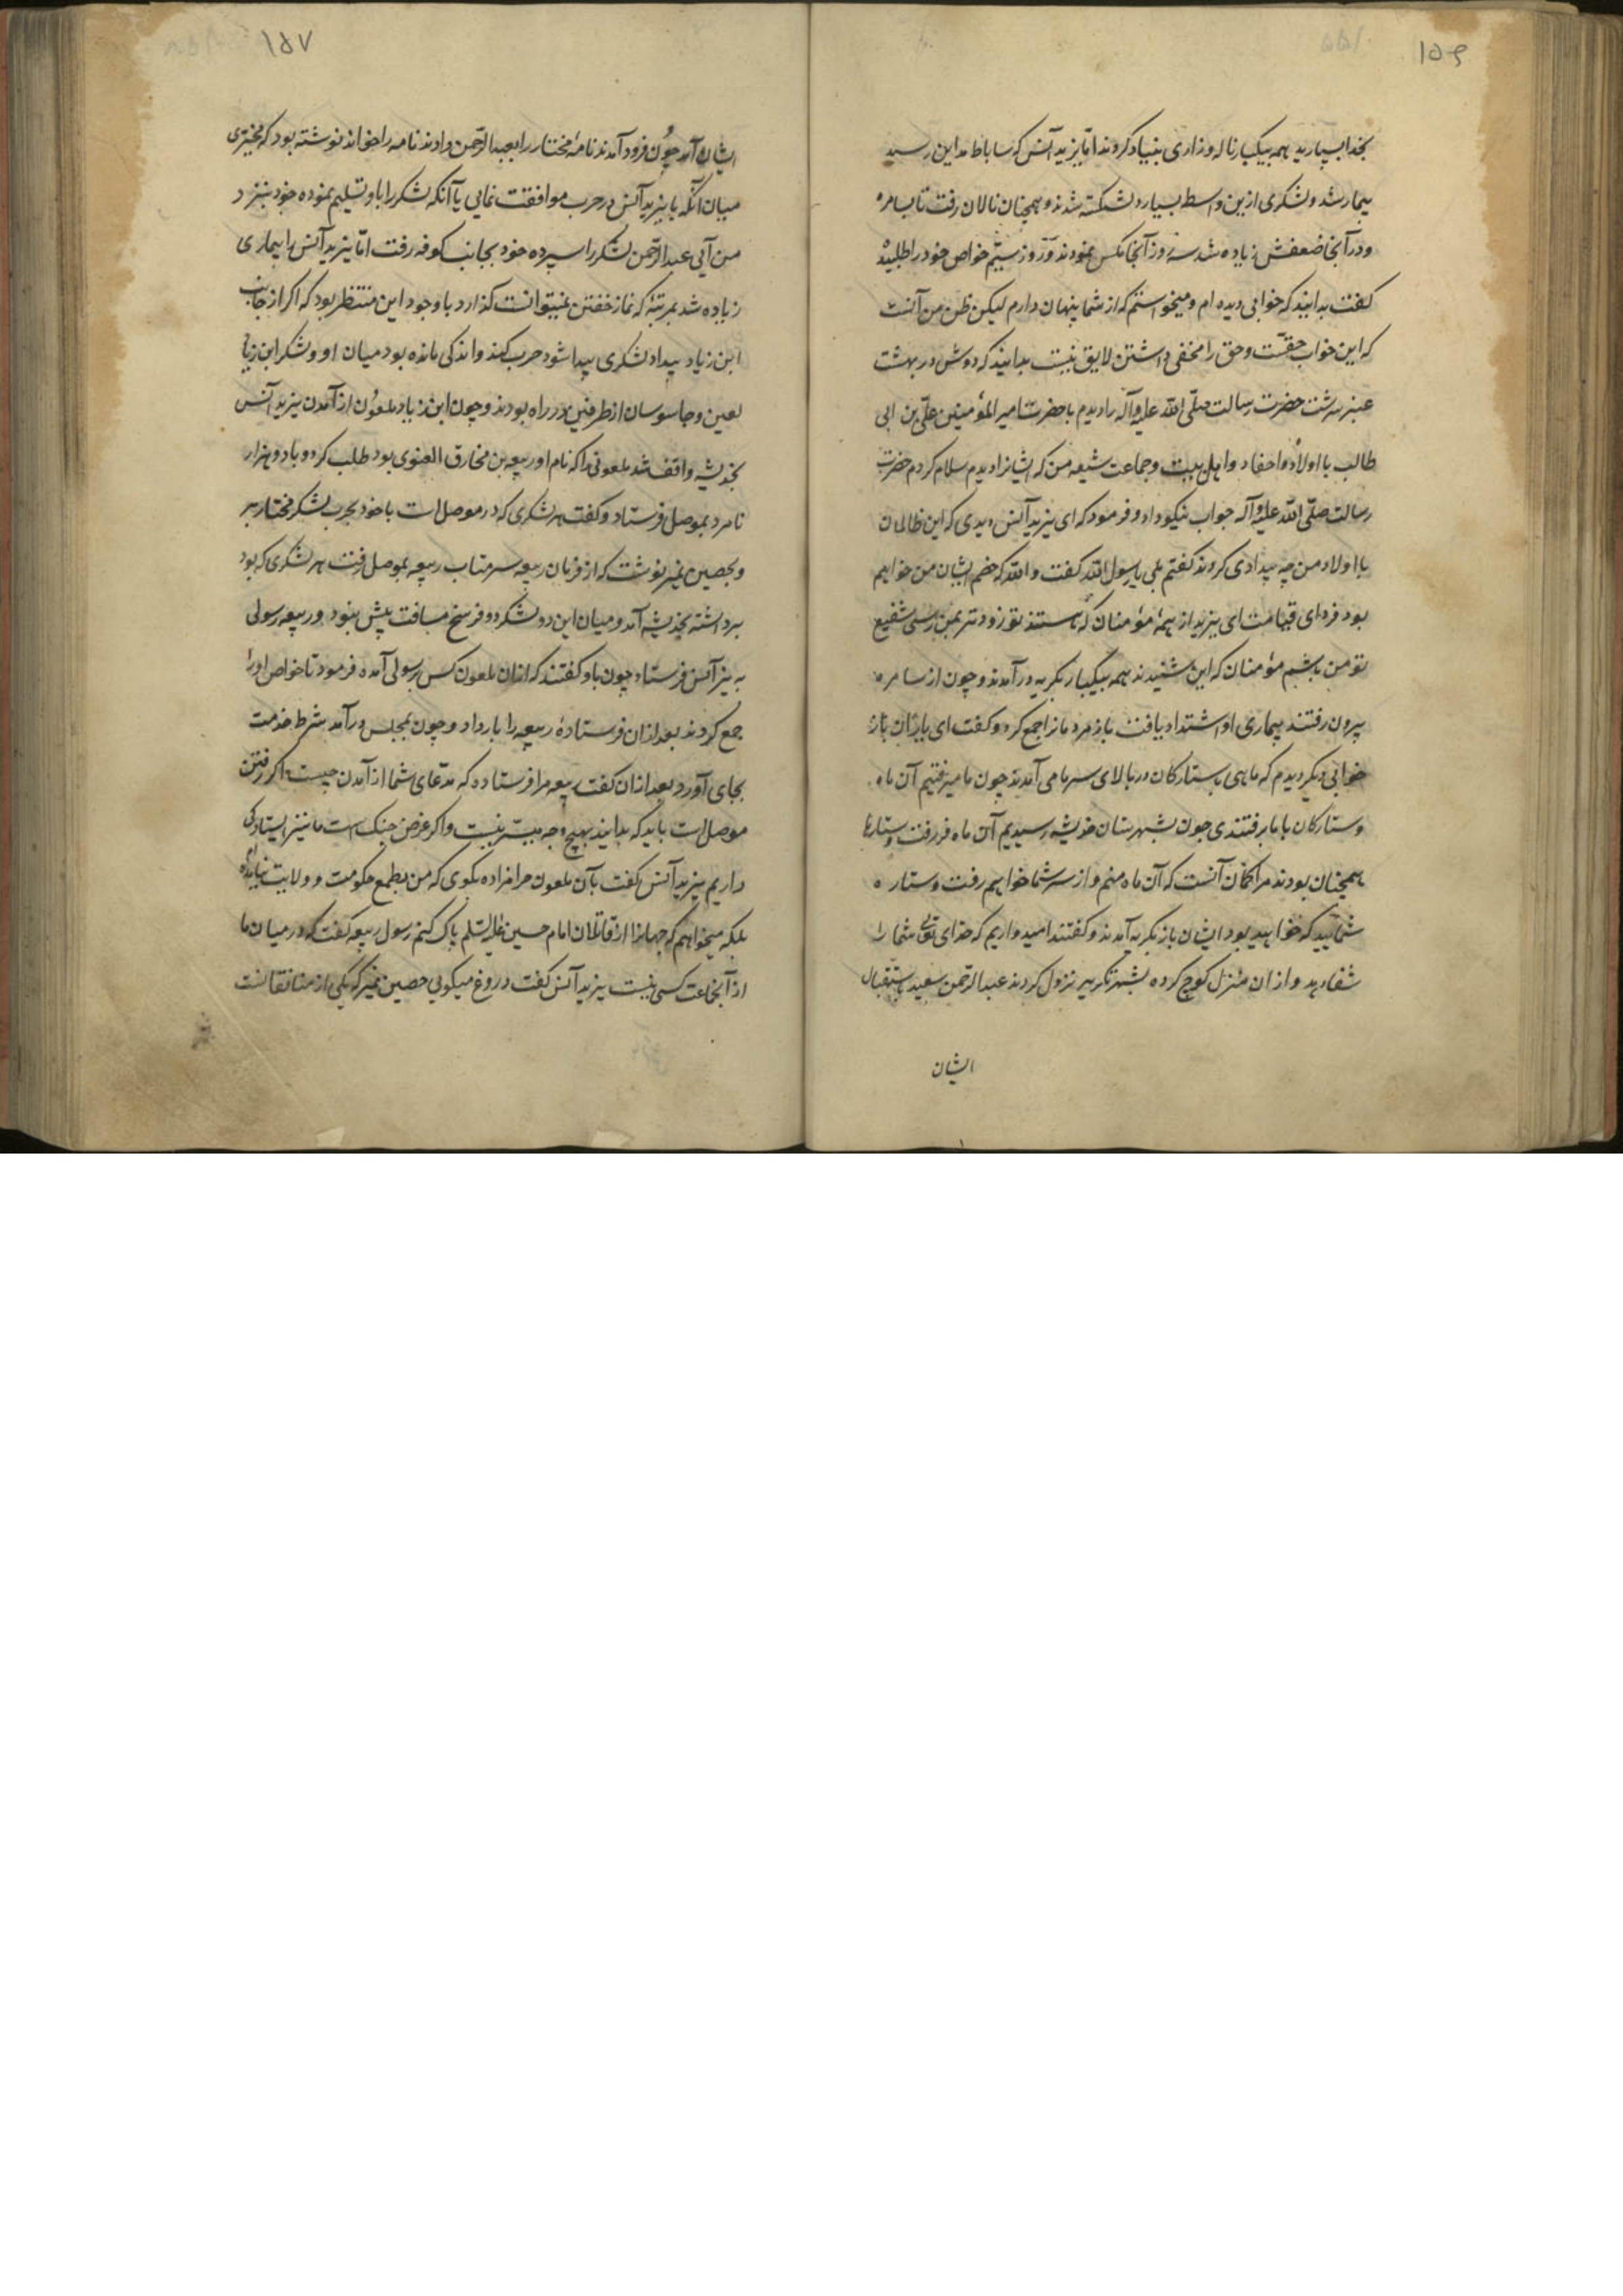 ۱۵۶
بخدا بسپارید همه بیکبار ناله و زاری بنیاد کردند اما یزید آنس که بساباط مداین رسید
بیمار شد و لشکری ازین واسطه بسیار دلشکسته شدند و همچنان نالان رفت تا بسامره
و در آنجا ضعفش زیاده شد سه روز آنجا مکس نمودند و روز سیم خواص خود را طلبیده
کفت بدانید که خوابی دیده ام و میخواستم که از شما پنهان دارم لیکن ظن من آنست
که این خواب حقست و حق را مخفی داشتن لایق نیست بدانید که دوش در بهشت
عنبر سرشت حضرت رسالت صلی الله علیه وآله را دیدم با حضرت امیر المؤمنین علی بن ابی
طالب با اولاد و احفاد و اهل بیت و جماعت شیعه من که ایشانرا دیدم سلام کردم حضرت
رسالت صلی الله علیه وآله جواب نیکو داد و فرمود که ای یزید آنس دیدی که این ظالمان
با اولاد من چه بیدادی کردند کفتم بلی یا رسول الله کفت والله که خصم ایشان من خواهم
بود فردای قیامت ای یزید از همهٔ مؤمنان که هستند تو زودتر بمن رسی شفیع
تو من باشم مؤمنان که این شنیدند همه بیکبار بکریه درآمدند و چون از سامره
بیرون رفتند بیماری او اشتداد یافت باز مردمانرا جمع کرد و کفت ای یاران باز
خوابی دیکر دیدم که ماهی با ستارکان در بالای سر ما می آمدند چون ما میرفتیم آن ماه
و ستارکان با ما برفتندی چون بشهرستان خدیثه رسیدیم آن ماه فرو رفت و ستارها
همچنان بودند مرا کمان آنست که آن ماه منم و از سر شما خواهم رفت و ستاره
شمایید که خواهید بود ایشان باز بکریه آمدند و کفتند امید واریم که خدای تعالی شما را
شفا دهد و از ان منزل کوچ کرده بشهر نزول کردند عبدالرحمن سعید باستقبال
ایشان
۱۵۷
ایشان آمد چون فرود آمدند نامهٔ مختار را بعبدالرحمن دادند نامه را خواند نوشته بود که مخیری
میان آنکه با یزید آنس در حرب موافقت نمایی یا آنکه لشکر را باو تسلیم نموده خود بنزد
من آیی عبدالرحمن لشکر را سپرده خود بجانب کوفه رفت اما یزید آنس را بیماری
زیاده شد بمرتبهٔ که نماز خفتن نمیتوانست کذارد با وجود این منتظر بود که اکر از جانب
ابن زیاد بیداد لشکری پیدا شود حرب کند و اندکی مانده بود میان او و لشکر ابن زیاد
لعین و جاسوسان از طرفین در راه بودند و چون ابن زیاد ملعون از آمدن یزید آنس
بخدیثه واقف شد ملعونی را که نام او ربیعه بن مخارق الغنوی بود طلب کرد و با دو هزار
نامرد بموصل فرستاد و کفت هر لشکری که در موصل است با خود بحرب لشکر مختار بر
و بحصین نمیر نوشت که از فرمان ربیعه سر متاب ربیعه بموصل رفت هر لشکری که بود
برداشته بخدیثه آمد و میان این دو لشکر دو فرسخ مسافت بیش نبود و ربیعه رسولی
به یزید آنس فرستاد چون باو کفتند که از ان ملعون کس برسولی آمده فرمود تا خواص او را
جمع کردند بعد از ان فرستادهٔ ربیعه را بار داد و چون بمجلس درآمد شرط خدمت
بجای آورد بعد از ان کفت ربیعه مرا فرستاده که مدعای شما از آمدن چیست اکر رفتن
موصل است باید که بدانید بهیچ وجه میسر نیست و اکر غرض جنک است ما نیز ایستادکی
داریم یزید آنس کفت بآن ملعون حرامزاده بکوی که من بطمع حکومت و ولایت نیامده ام
بلکه میخواهم که جهانرا از قاتلان امام حسین علیه السلام پاک کنم رسول ربیعه کفت که در میان ما
از آنجماعت کسی نیست یزید آنس کفت دروغ میکویی حصین نمیر که یکی از منافقانست